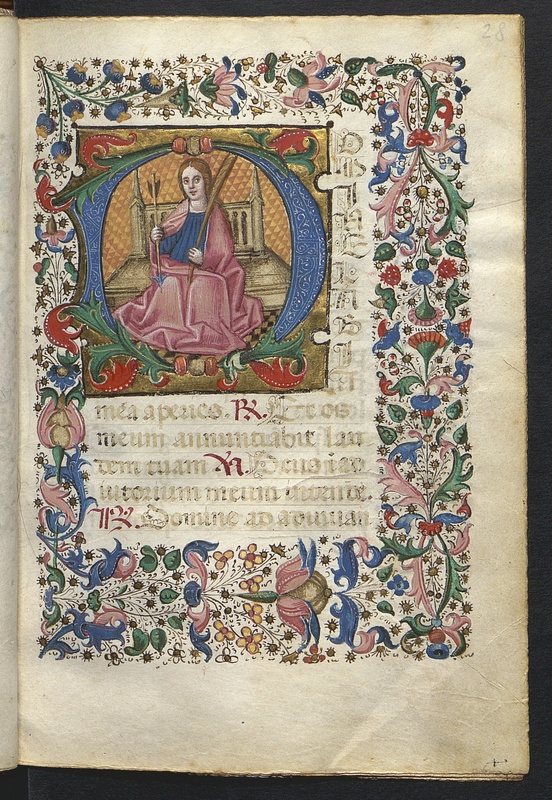 28
D
O
M
I
N
E
L
A
B
I
mea aperies. R. Et os
meum annunciabit lau
dem tuam V. Deus i ad
iutorium meum intende.
R. Domine ad adiuuan